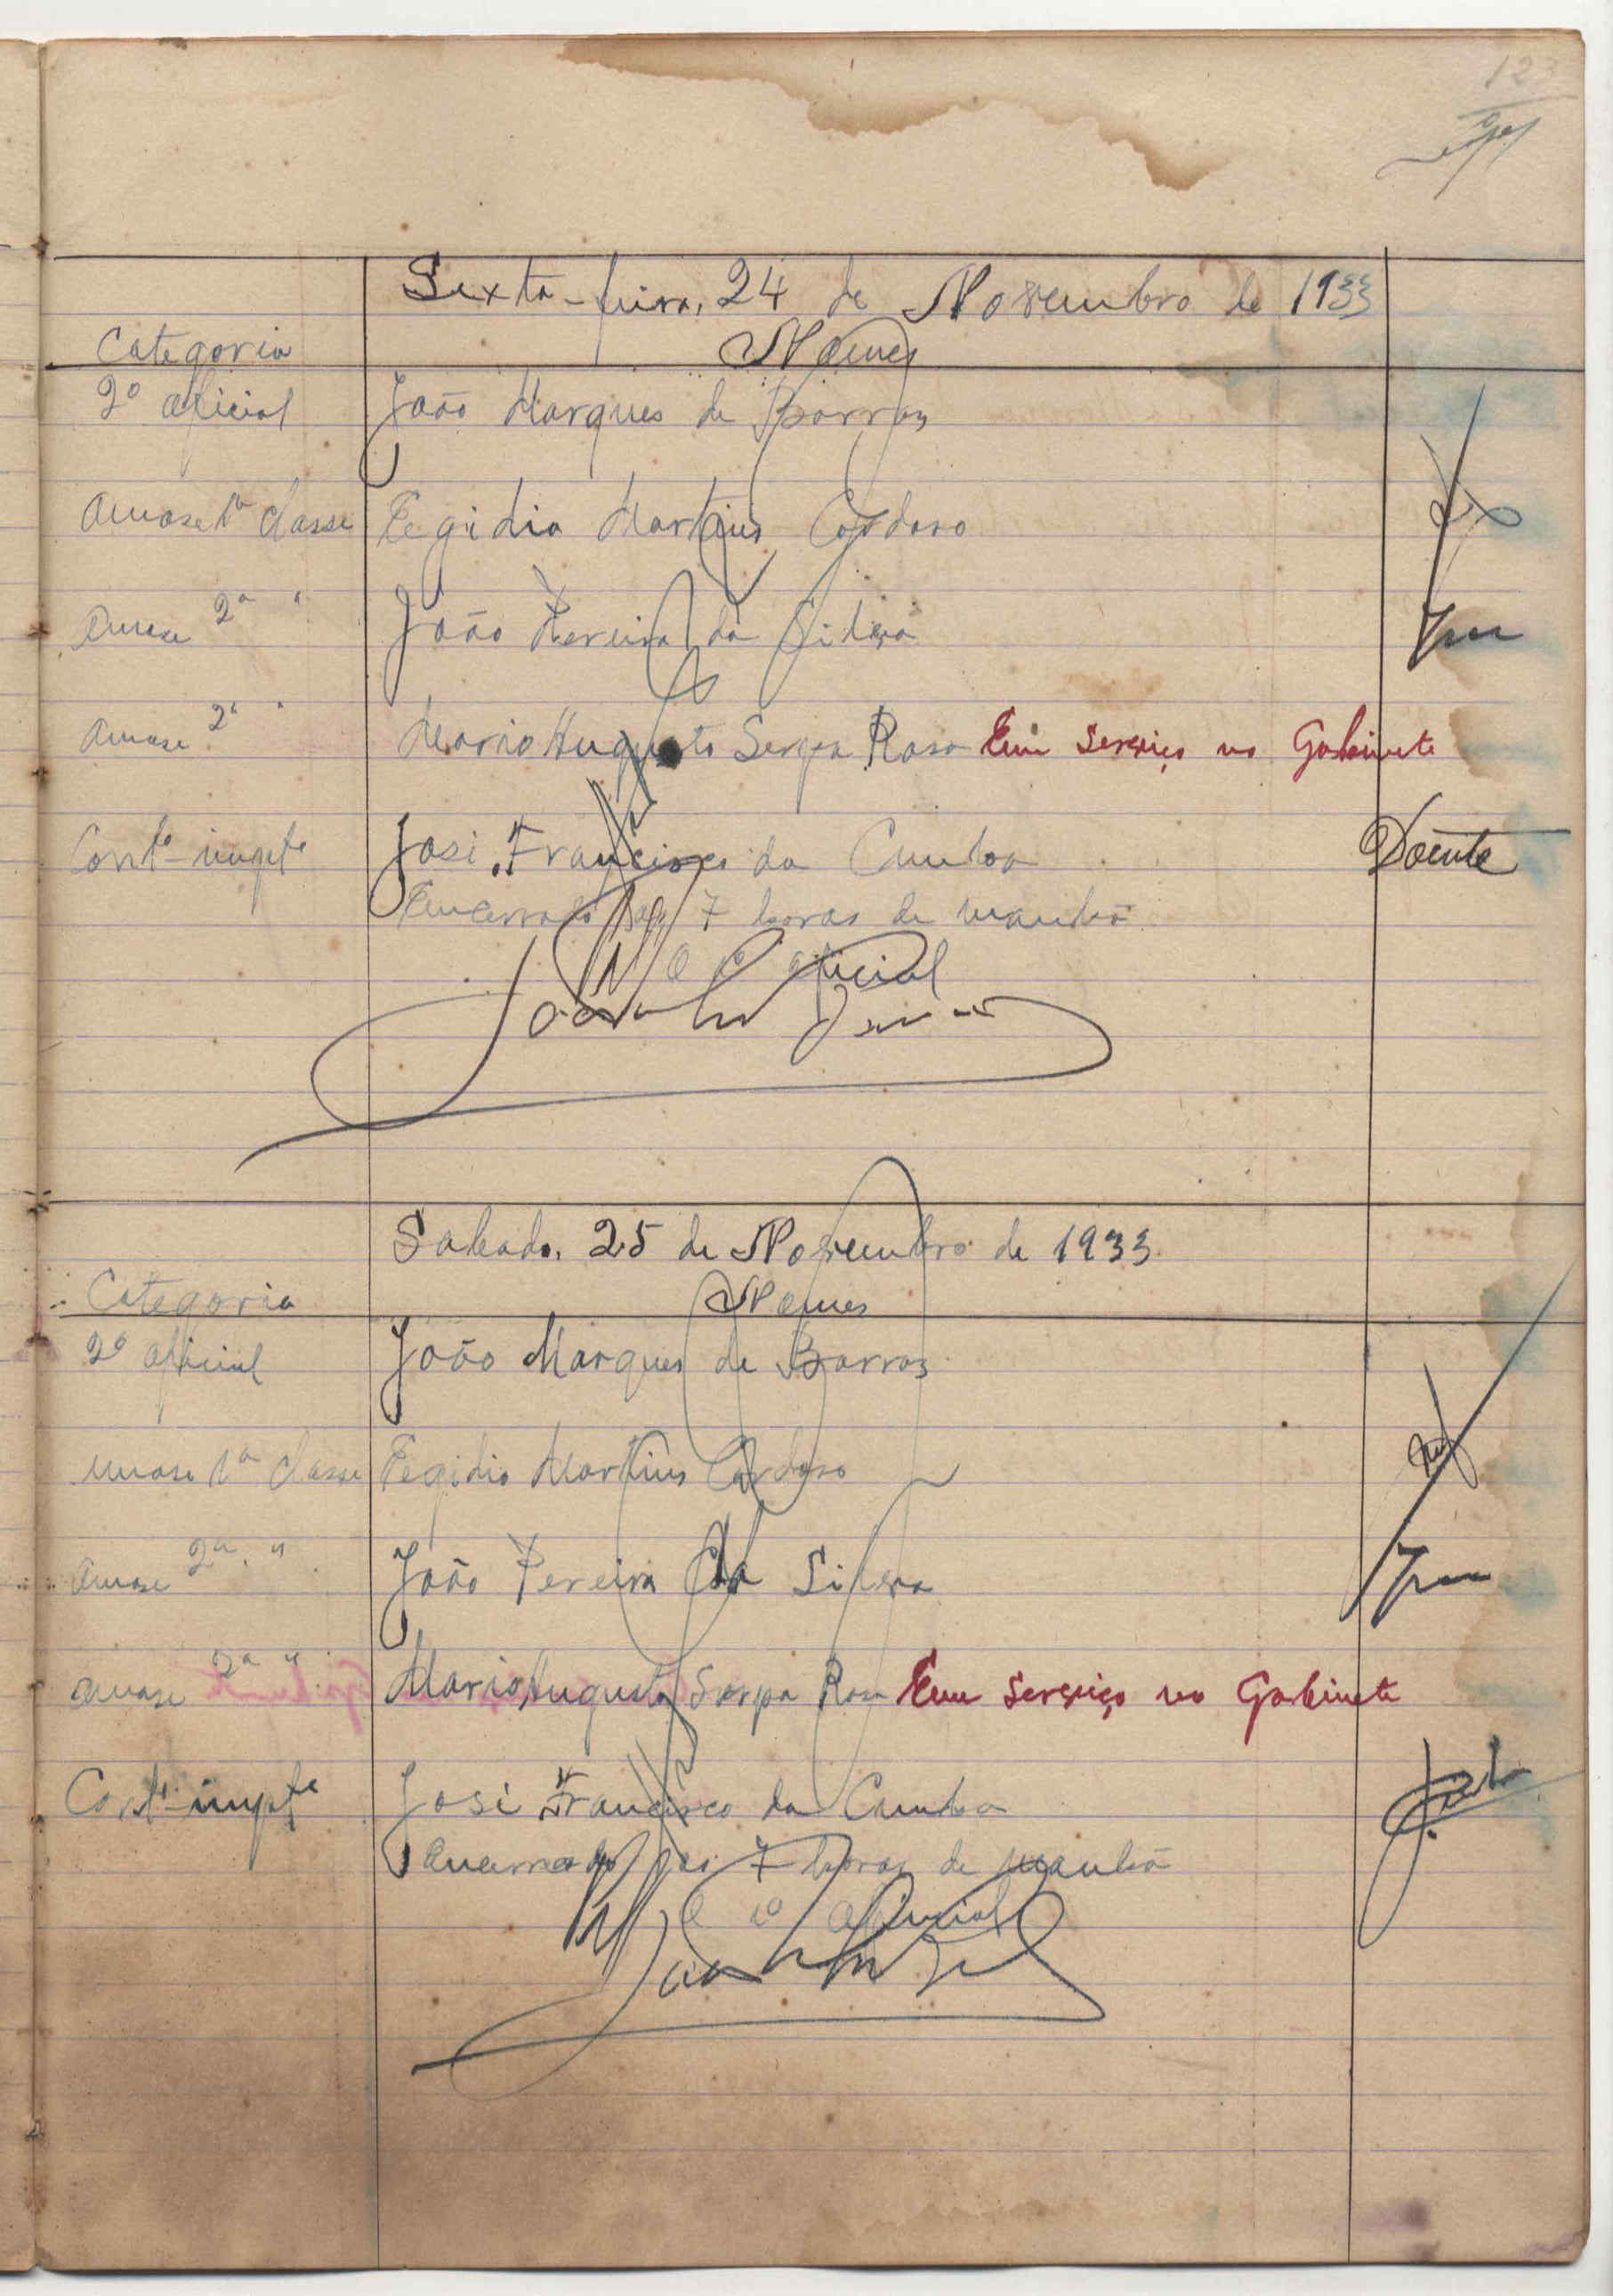 123
Sexta-feira, 24 de Novembro de 1933
Categoria Nomes
2º oficial João Marques de Barros
Amase 1ª classe Egidio Martins Cardoso
Amase 2ª " João Pereira da Silva
Amase 2ª " Mario Augusto Serpa Rosa Em serviço no Gabinete
Contº impte José Francisco da Cunha Doente
Encerrado ás 7 horas da manhã
O 2º oficial
Sabado, 25 de Novembro de 1933
Categoria Nomes
2º oficial João Marques de Barros
Amase 1ª classe Egidio Martins Cardoso
Amase 2ª " João Pereira da Silva
Amase 2ª " Mario Augusto Serpa Rosa Em serviço no Gabinete
Contº impte José Francisco da Cunha
Encerrado ás 7 horas da manhã
O 2º oficial